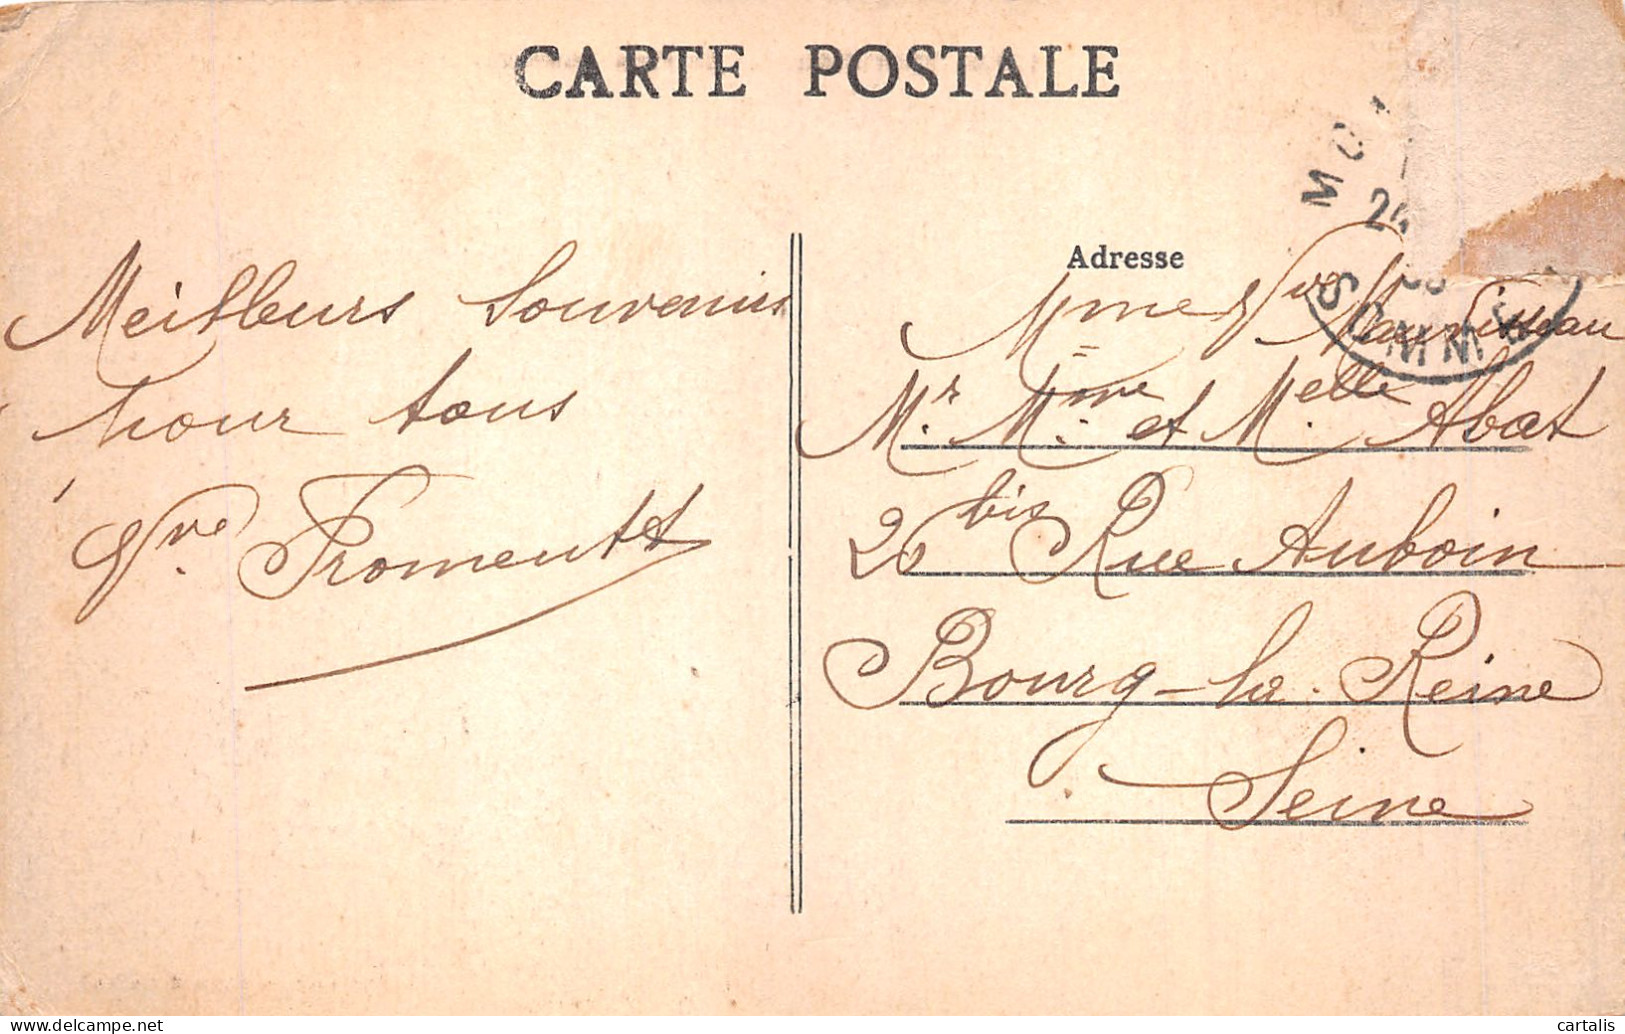 CARTE POSTALE
Meilleurs Souvenirs
pour tous
Vve. Fromentt
SOMME
24
Adresse
Mme Vve
Mr. Mme. et Melle. Abat
bis Rue Auboin
Bourg-la-Reine
Seine
www.delcampe.net
cartalis